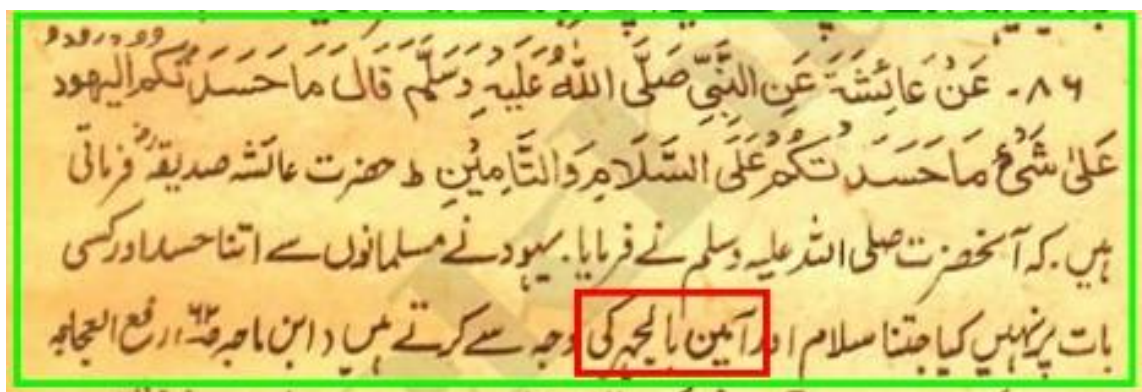 ۸۶۔ عَنْ عَائِشَةَ عَنِ النَّبِيِّ صَلَّى اللّٰهُ عَلَيْهِ وَسَلَّمَ قَالَ مَا حَسَدَتْكُمُ الْيَهُودُ
عَلٰى شَیْءٍ مَا حَسَدَتْكُمْ عَلَى السَّلَامِ وَالتَّامِيْنِ ط حضرت عائشہ صدیقہؓ فرماتی
ہیں۔ کہ آنحضرت صلی اللہ علیہ وسلم نے فرمایا۔ یہود نے مسلمانوں سے اتنا حسد اور کسی
بات پر نہیں کیا جتنا سلام اور آمین بالجہر کی وجہ سے کرتے ہیں (ابن ماجہ ص۶۲، رفع العجاجہ